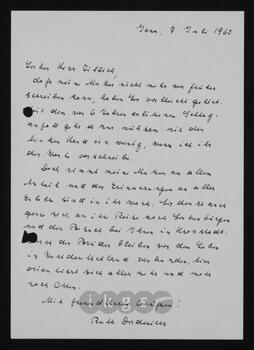 Jena, 7. Juli 1960
Lieber Herr Zillich,
daß meine Mutter nicht mehr wie früher
schreiben kann, haben Sie vielleicht gehört.
Seit dem vor 6 Jahren erlittenen Schlag-
anfall geht es nur mühsam mit der
linken Hand ein wenig, wenn ich ihr
die Worte vorschreibe.
Doch nimmt meine Mutter an allem
Anteil und die Erinnerungen an alles
Erlebte sind in ihr wach. So denkt sie noch
gern an ihre Reise nach Siebenbürgen
und den Besuch bei Ihnen in Kronstadt.
Durch die Brüder bleiben wir dem Leben
in Westdeutschland verbunden, hier
orientiert sich alles mehr und mehr
nach Osten.
Mit freundlichen Grüßen!
IKGS
Ruth